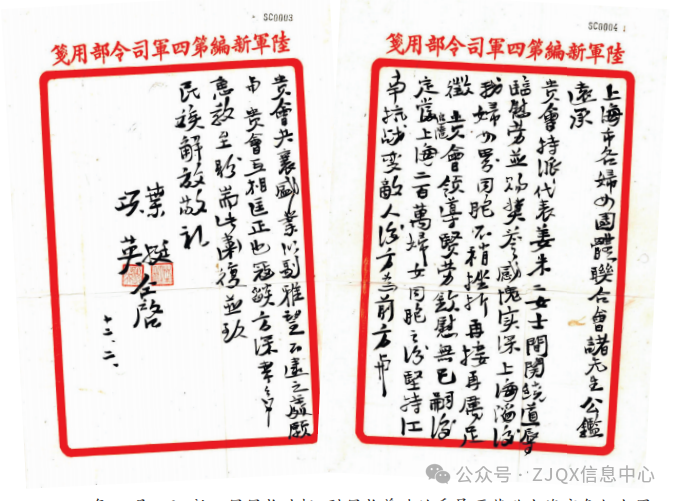 SC0004
陸軍新編第四軍司令部用箋
上海市各婦女團體聯合會諸先生公鑑
遠承
貴會特派代表姜朱二女士間關繞道辱
臨慰勞並賜獎感愧實深上海淪後
婦女界同胞不稍挫折再接再厲足
徵貴會領導賢勞欽慰無已嗣後
定當上海二百萬婦女同胞之後堅持江
南抗戰變敵人後方為前方
SC0003
陸軍新編第四軍司令部用箋
貴會共襄盛業以副雅望不遠之
與貴會互相匡正也方深
惠教是盼耑此肅復並致
民族解放敬禮
葉挺
項英仝啓
十二.二.
公众号·ZJQX信息中心